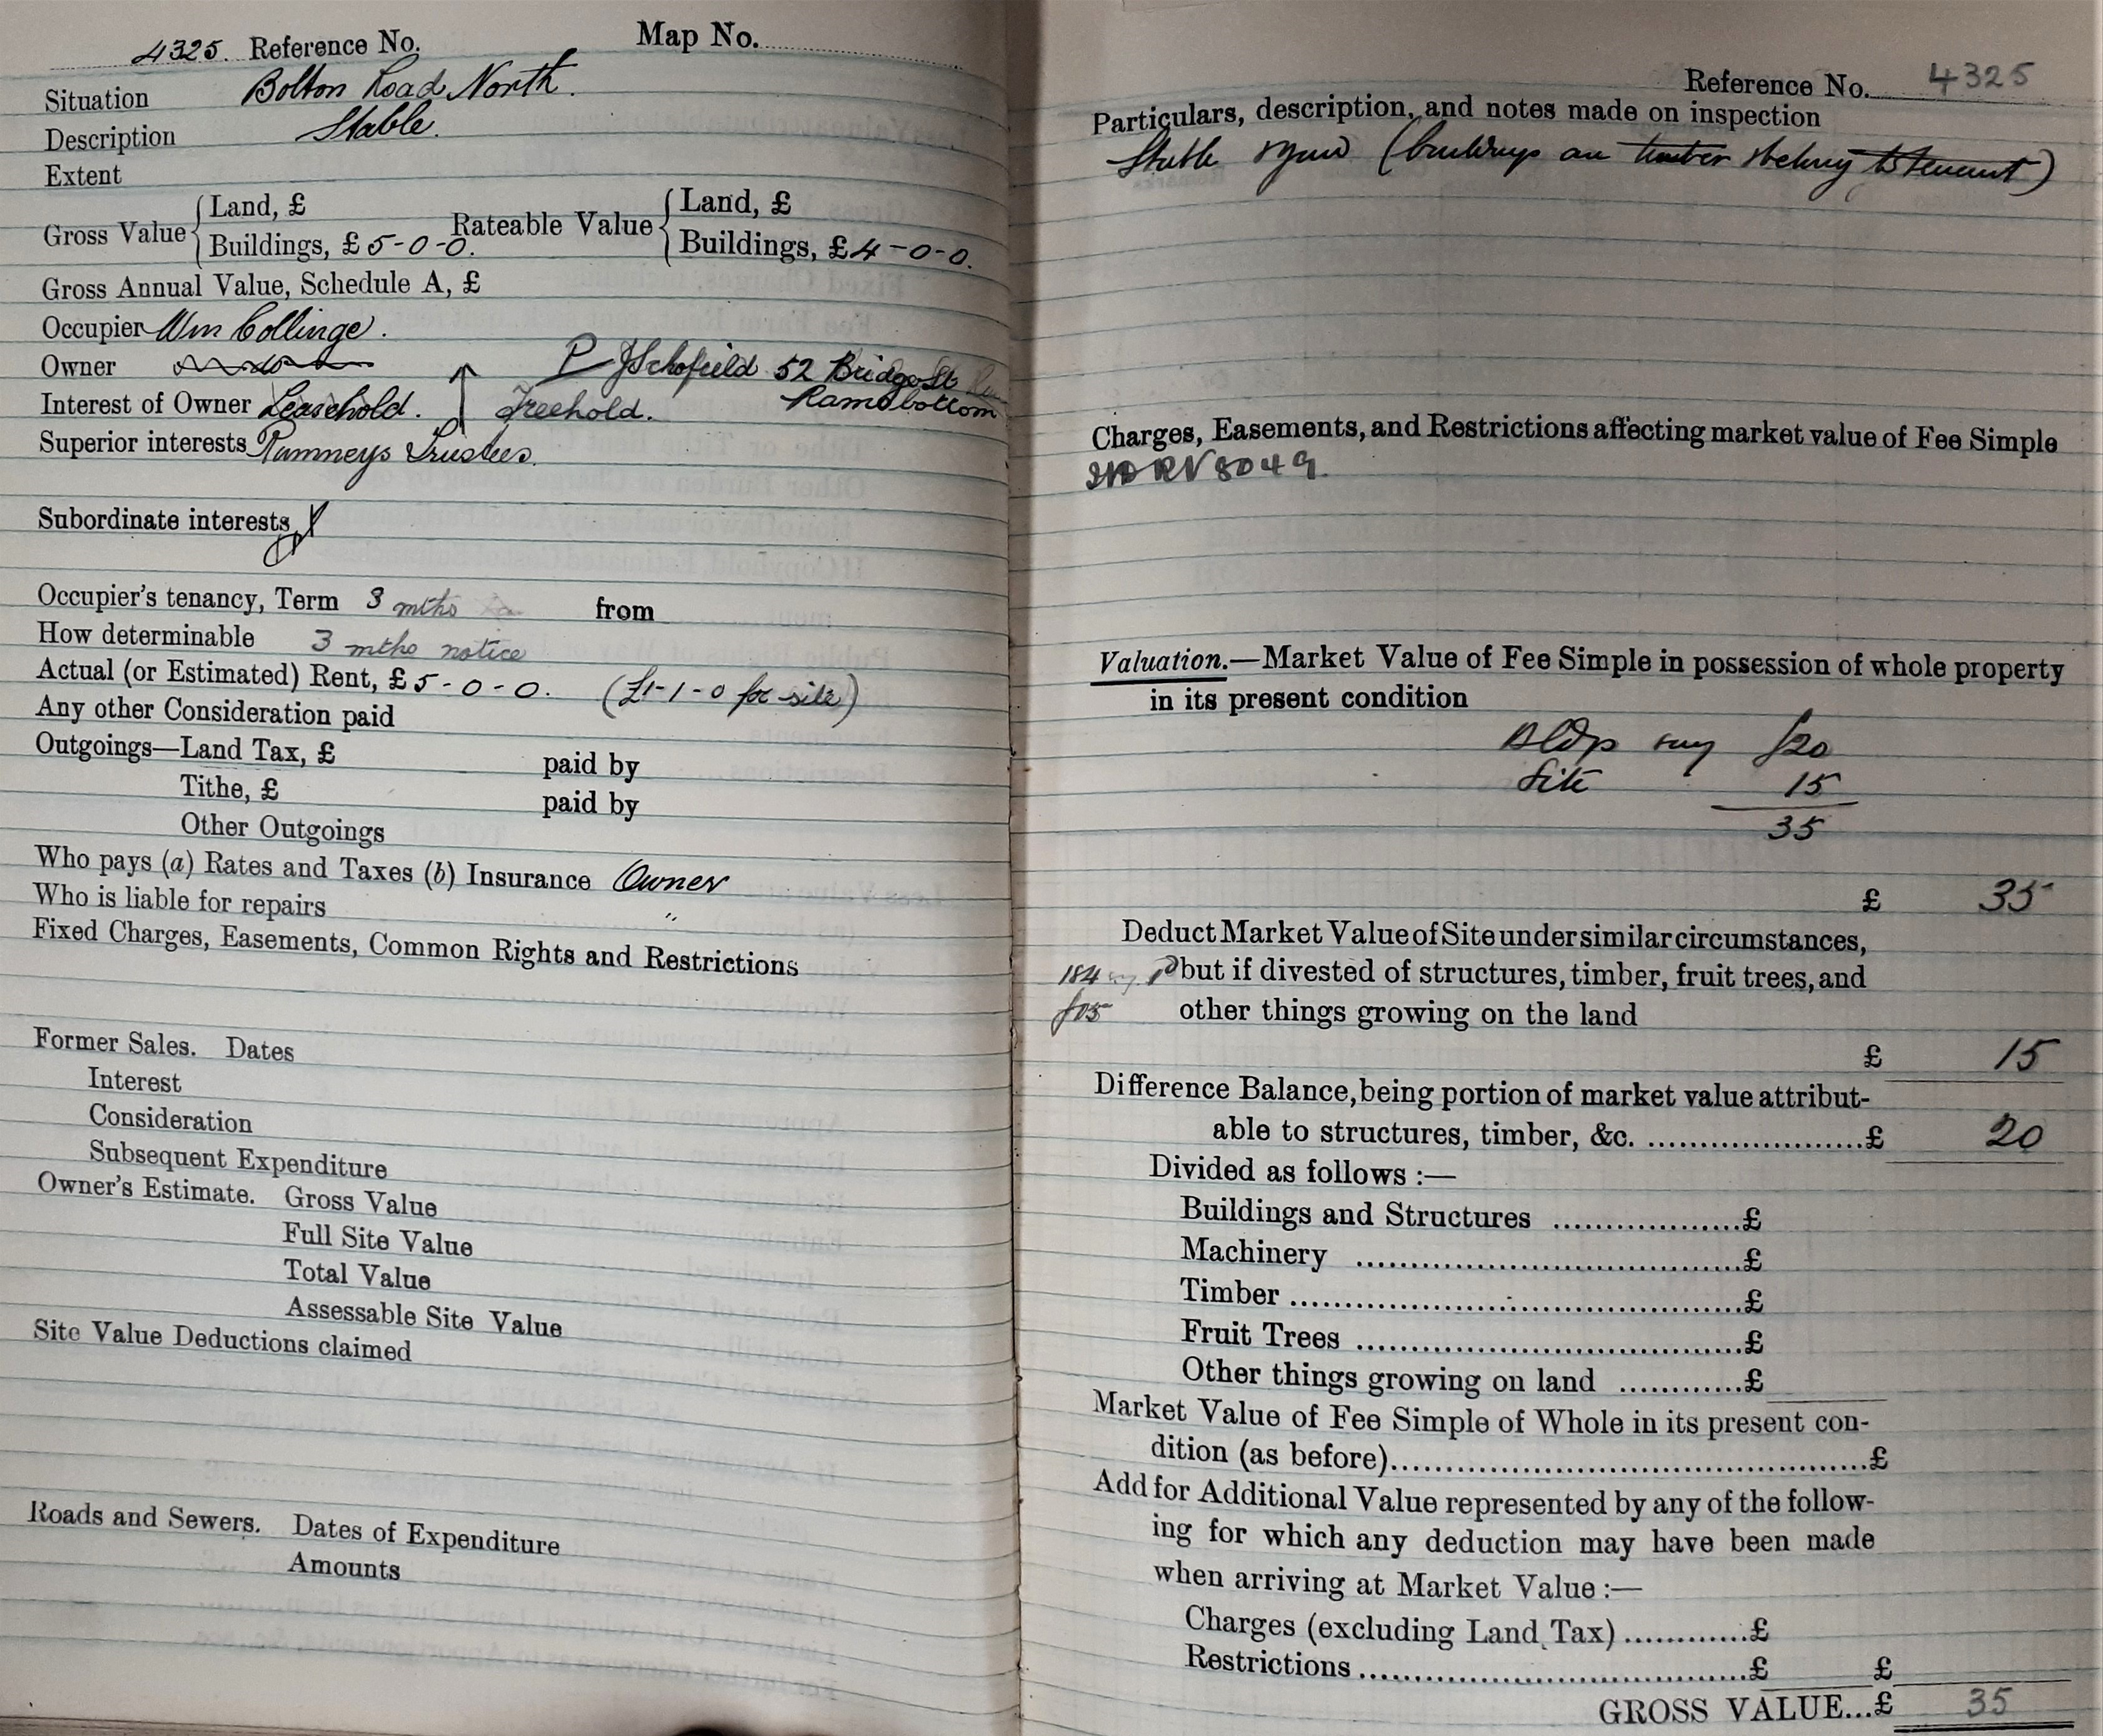 4325. Reference No. Map No.
Situation Bolton Road North.
Description Stable.
Extent
Gross Value { Land, £ Rateable Value { Land, £
Buildings, £ 5-0-0. Buildings, £ 4-0-0.
Gross Annual Value, Schedule A, £
Occupier Wm Collinge.
Owner P J Schofield 52 Bridge St
Ramsbottom
Interest of Owner Leasehold. Freehold.
Superior interests Rumneys Trustees.
Subordinate interests
Occupier's tenancy, Term 3 mths from
How determinable 3 mths notice
Actual (or Estimated) Rent, £ 5-0-0. (£1-1-0 for site)
Any other Consideration paid
Outgoings—Land Tax, £ paid by
Tithe, £ paid by
Other Outgoings
Who pays (a) Rates and Taxes (b) Insurance Owner
Who is liable for repairs "
Fixed Charges, Easements, Common Rights and Restrictions
Former Sales. Dates
Interest
Consideration
Subsequent Expenditure
Owner's Estimate. Gross Value
Full Site Value
Total Value
Assessable Site Value
Site Value Deductions claimed
Roads and Sewers. Dates of Expenditure
Amounts
Reference No. 4325
Particulars, description, and notes made on inspection
Stable (buildings are timber & belong to tenant)
Charges, Easements, and Restrictions affecting market value of Fee Simple
RV 8049.
Valuation.—Market Value of Fee Simple in possession of whole property
in its present condition
Bldgs say £20
Site 15
35
£ 35
Deduct Market Value of Site under similar circumstances,
184 but if divested of structures, timber, fruit trees, and
other things growing on the land
£ 15
Difference Balance, being portion of market value attribut-
able to structures, timber, &c. ......................£ 20
Divided as follows :—
Buildings and Structures ..................£
Machinery ....................................£
Timber ..........................................£
Fruit Trees ....................................£
Other things growing on land ............£
Market Value of Fee Simple of Whole in its present con-
dition (as before)..............................................£
Add for Additional Value represented by any of the follow-
ing for which any deduction may have been made
when arriving at Market Value :—
Charges (excluding Land Tax) ............£
Restrictions ....................................£ £
GROSS VALUE...£ 35